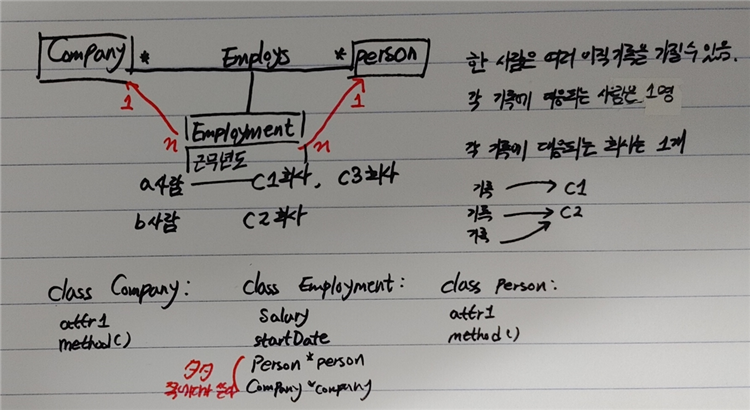 Company * Employs * person
1 1
n Employment n
근무년도
a사람 C1회사, C3회사
b사람 C2회사
한 사람은 여러 이직기록을 가질 수 있음.
각 기록에 대응되는 사람은 1명
각 기록에 대응되는 회사는 1개
기록 C1
기록 C2
기록
class Company:
attr1
method()
class Employment:
Salary
startDate
Person *person
Company *company
class Person:
attr1
method()